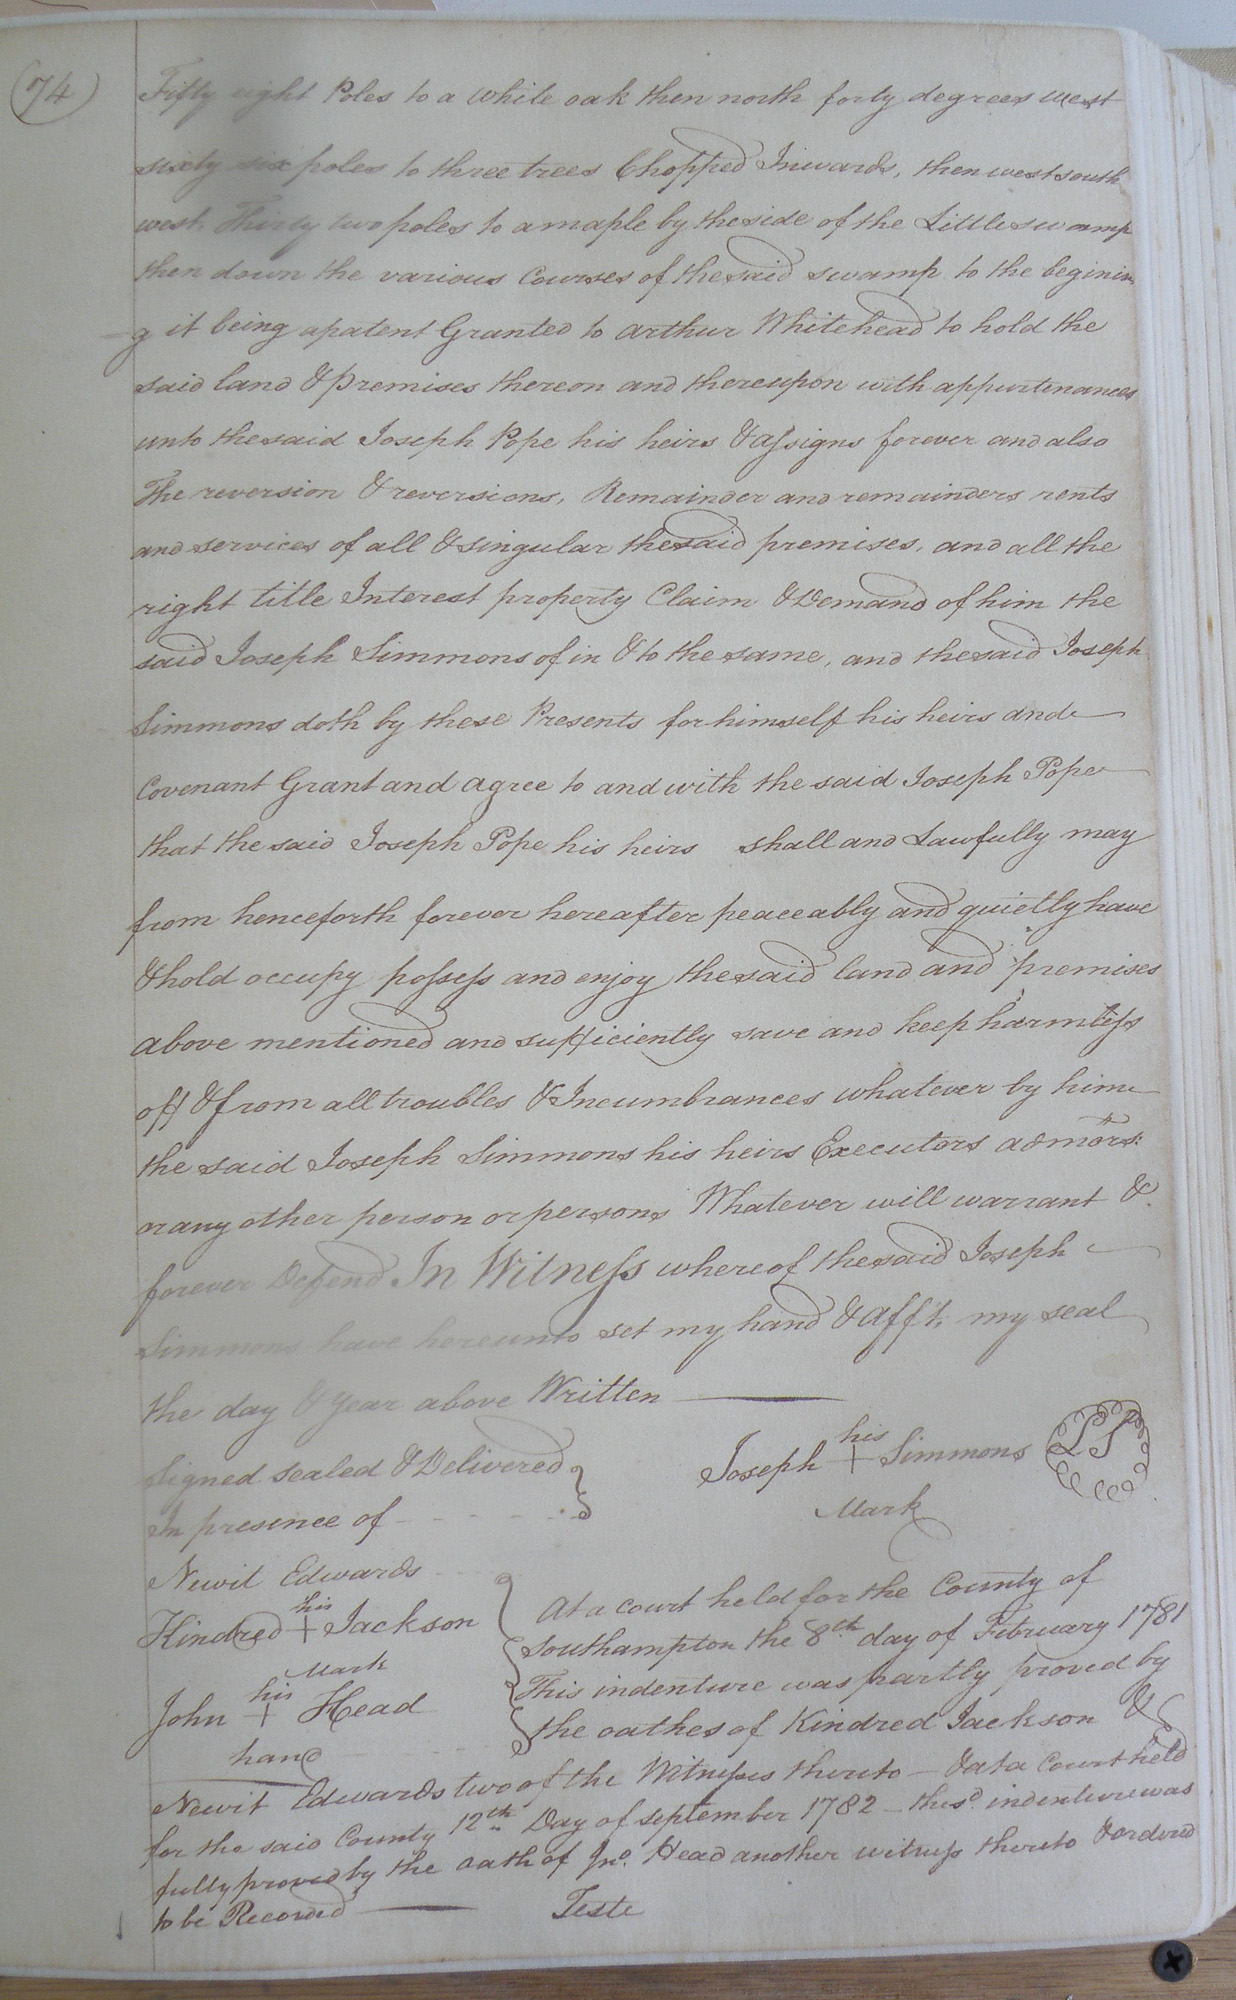 74
Fifty eight Poles to a White oak then north forty degrees west
sixty six poles to three trees Chopped Inwards, then west south
west Thirty two poles to a maple by the side of the Little swamp
then down the various Courses of the said swamp to the beginin
-g it being a patent Granted to Arthur Whitehead to hold the
said land & Premises thereon and thereupon with appurtenances
unto the said Joseph Pope his heirs & assigns forever and also
The reversion & reversions, Remainder and remainders rents
and services of all & singular the said premises, and all the
right title Interest property Claim & Demand of him the
said Joseph Simmons of in & to the same, and the said Joseph
Simmons doth by these Presents for himself his heirs and
Covenant Grant and agree to and with the said Joseph Pope
that the said Joseph Pope his heirs shall and Lawfully may
from henceforth forever hereafter peaceably and quietly have
& hold occupy possess and enjoy the said land and premises
above mentioned and sufficiently save and keep harmless
off & from all troubles & Incumbrances whatever by him
the said Joseph Simmons his heirs Executors admors:
or any other person or persons Whatever will warrant &
forever Defend In Witness whereof the said Joseph
Simmons have hereunto set my hand & aff't. my seal
the day & year above Written
Signed sealed & Delivered
In presence of
Joseph his + Simmons LS
Mark
Newit Edwards
Kindred his + Jackson
Mark
John his + Head
hand
At a court held for the County of
Southampton the 8th day of February 1781
This indenture was partly proved by
the oathes of Kindred Jackson &
Newit Edwards two of the Witnesses thereto - & at a Court held
for the said County 12th Day of September 1782 - the sd. indenture was
fully proved by the oath of Jno. Head another witness thereto & ordered
to be Recorded
Teste